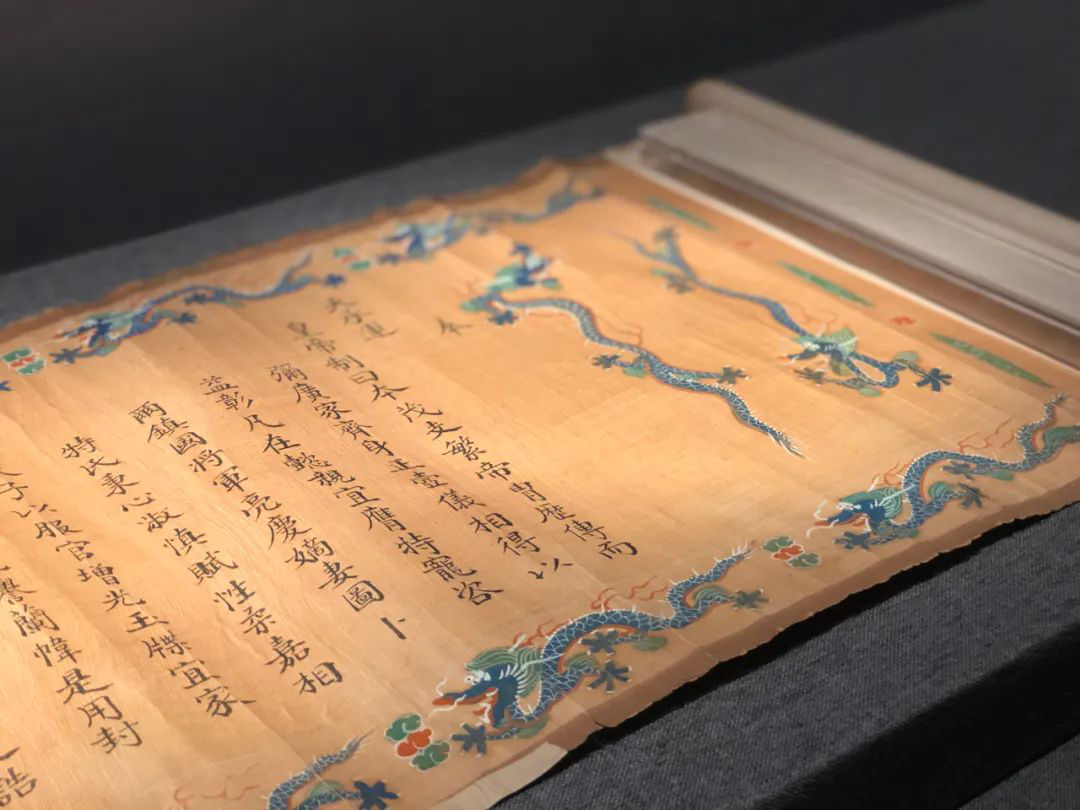 奉
天承運
皇帝制曰本茂支繁帝胄歷傳而
彌廣家齊身正壼儀相得以
益彰凡在懿親宜膺特寵咨
爾鎮國将軍亮慶嫡妻圖卜
特氏秉心淑慎賦性柔嘉相
子以服官增光玉牒宜家
蘭幃是用封
誥